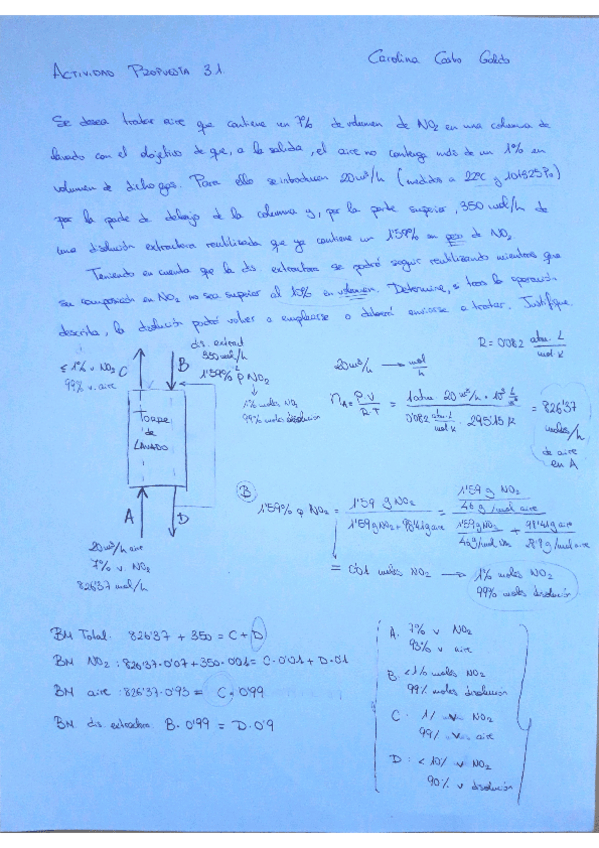 Carolina Castro Galdo
ACTIVIDAD PROPUESTA 3.1
Se desea tratar aire que contiene un 7% de volumen de NO2 en una columna de
lavado con el objetivo de que, a la salida, el aire no contenga más de un 1% en
volumen de dicho gas. Para ello se introducen 20 m³/h (medidos a 22ºC y 101325 Pa)
por la parte de debajo de la columna y, por la parte superior, 350 mol/h de
una disolución extractora reutilizada que ya contiene un 1'59% en peso de NO2.
Teniendo en cuenta que la dis extractora se podrá seguir reutilizando mientras que
su composición en NO2 no sea superior al 10% en volumen. Determine, si tras la operación
descrita, la disolución podrá volver a emplearse o deberá enviarse a tratar. Justifique.
≤1% v NO2
99% v. aire
C
B
dis. extract
350 mol/h
1'59% p NO2
1% moles NO2
99% moles disolución
TORRE
de
LAVADO
A
D
20 m³/h aire
7% v. NO2
826'37 mol/h
R = 0'082 atm · L / mol K
20 m³/h → mol/h
nA = P V / R T = 1 atm · 20 m³/h · 10³ L/m³ / 0'082 atm·L/mol K · 295'15 K = 826'37 moles/h de aire en A
B
1'59% p NO2 = 1'59 g NO2 / 1'59 g NO2 + 98'41 g aire = 1'59 g NO2 / 46 g/mol aire / 1'59 g NO2 / 46 g/mol NO2 + 98'41 g aire / 28'9 g/mol aire
= 0'01 moles NO2 → 1% moles NO2
99% moles disolución
BM Total: 826'37 + 350 = C + D
BM NO2: 826'37·0'07 + 350·0'01 = C·0'01 + D·0'1
BM aire: 826'37·0'93 = C·0'99
BM dis. extractora: B·0'99 = D·0'9
A. 7% v NO2
93% v aire
B. <1% moles NO2
99% moles disolución
C. 1% v NO2
99% v aire
D: <10% v NO2
90% v disolución